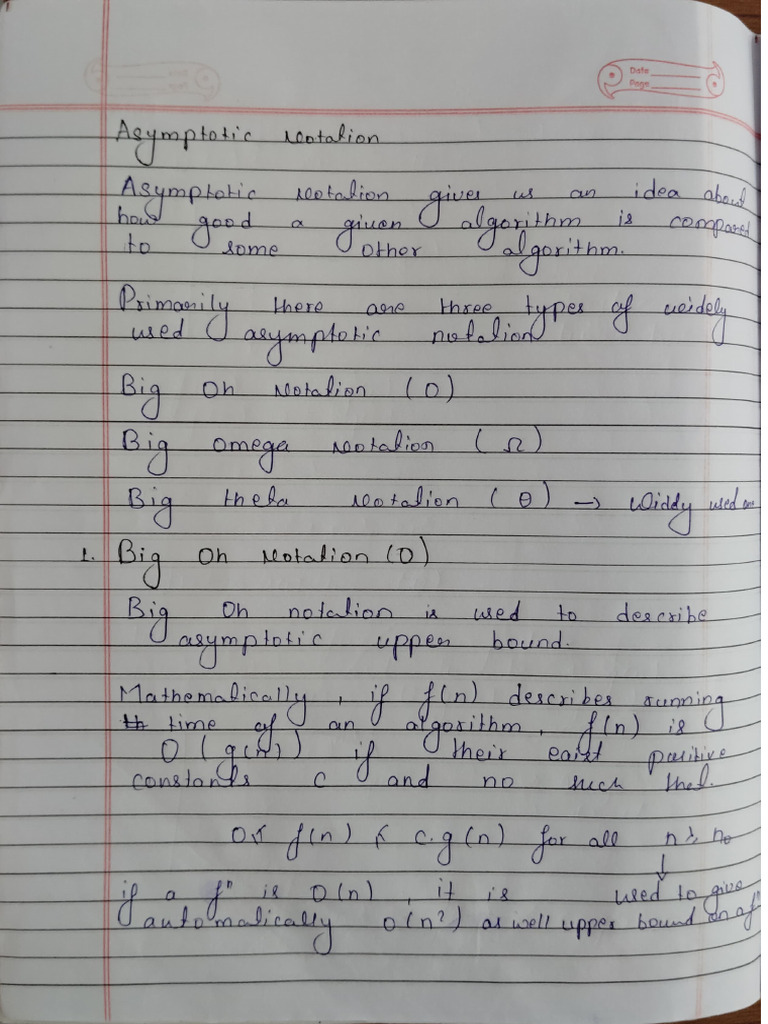 Date
Page
Asymptotic Notation
Asymptotic Notation gives us an idea about
how good a given algorithm is compared
to some other algorithm.
Primarily there are three types of widely
used asymptotic notation
Big Oh Notation (O)
Big omega Notation (Ω)
Big theta Notation (θ) → Widdy used one
1. Big Oh Notation (O)
Big Oh notation is used to describe
asymptotic upper bound.
Mathematically, if f(n) describes running
th time of an algorithm, f(n) is
O(g(n)) if their exist positive
constants C and no such that.
0≤ f(n) ≤ c.g(n) for all n≥ no
↓
if a fⁿ is O(n), it is used to give
automatically O(n²) as well upper bound on a fⁿ